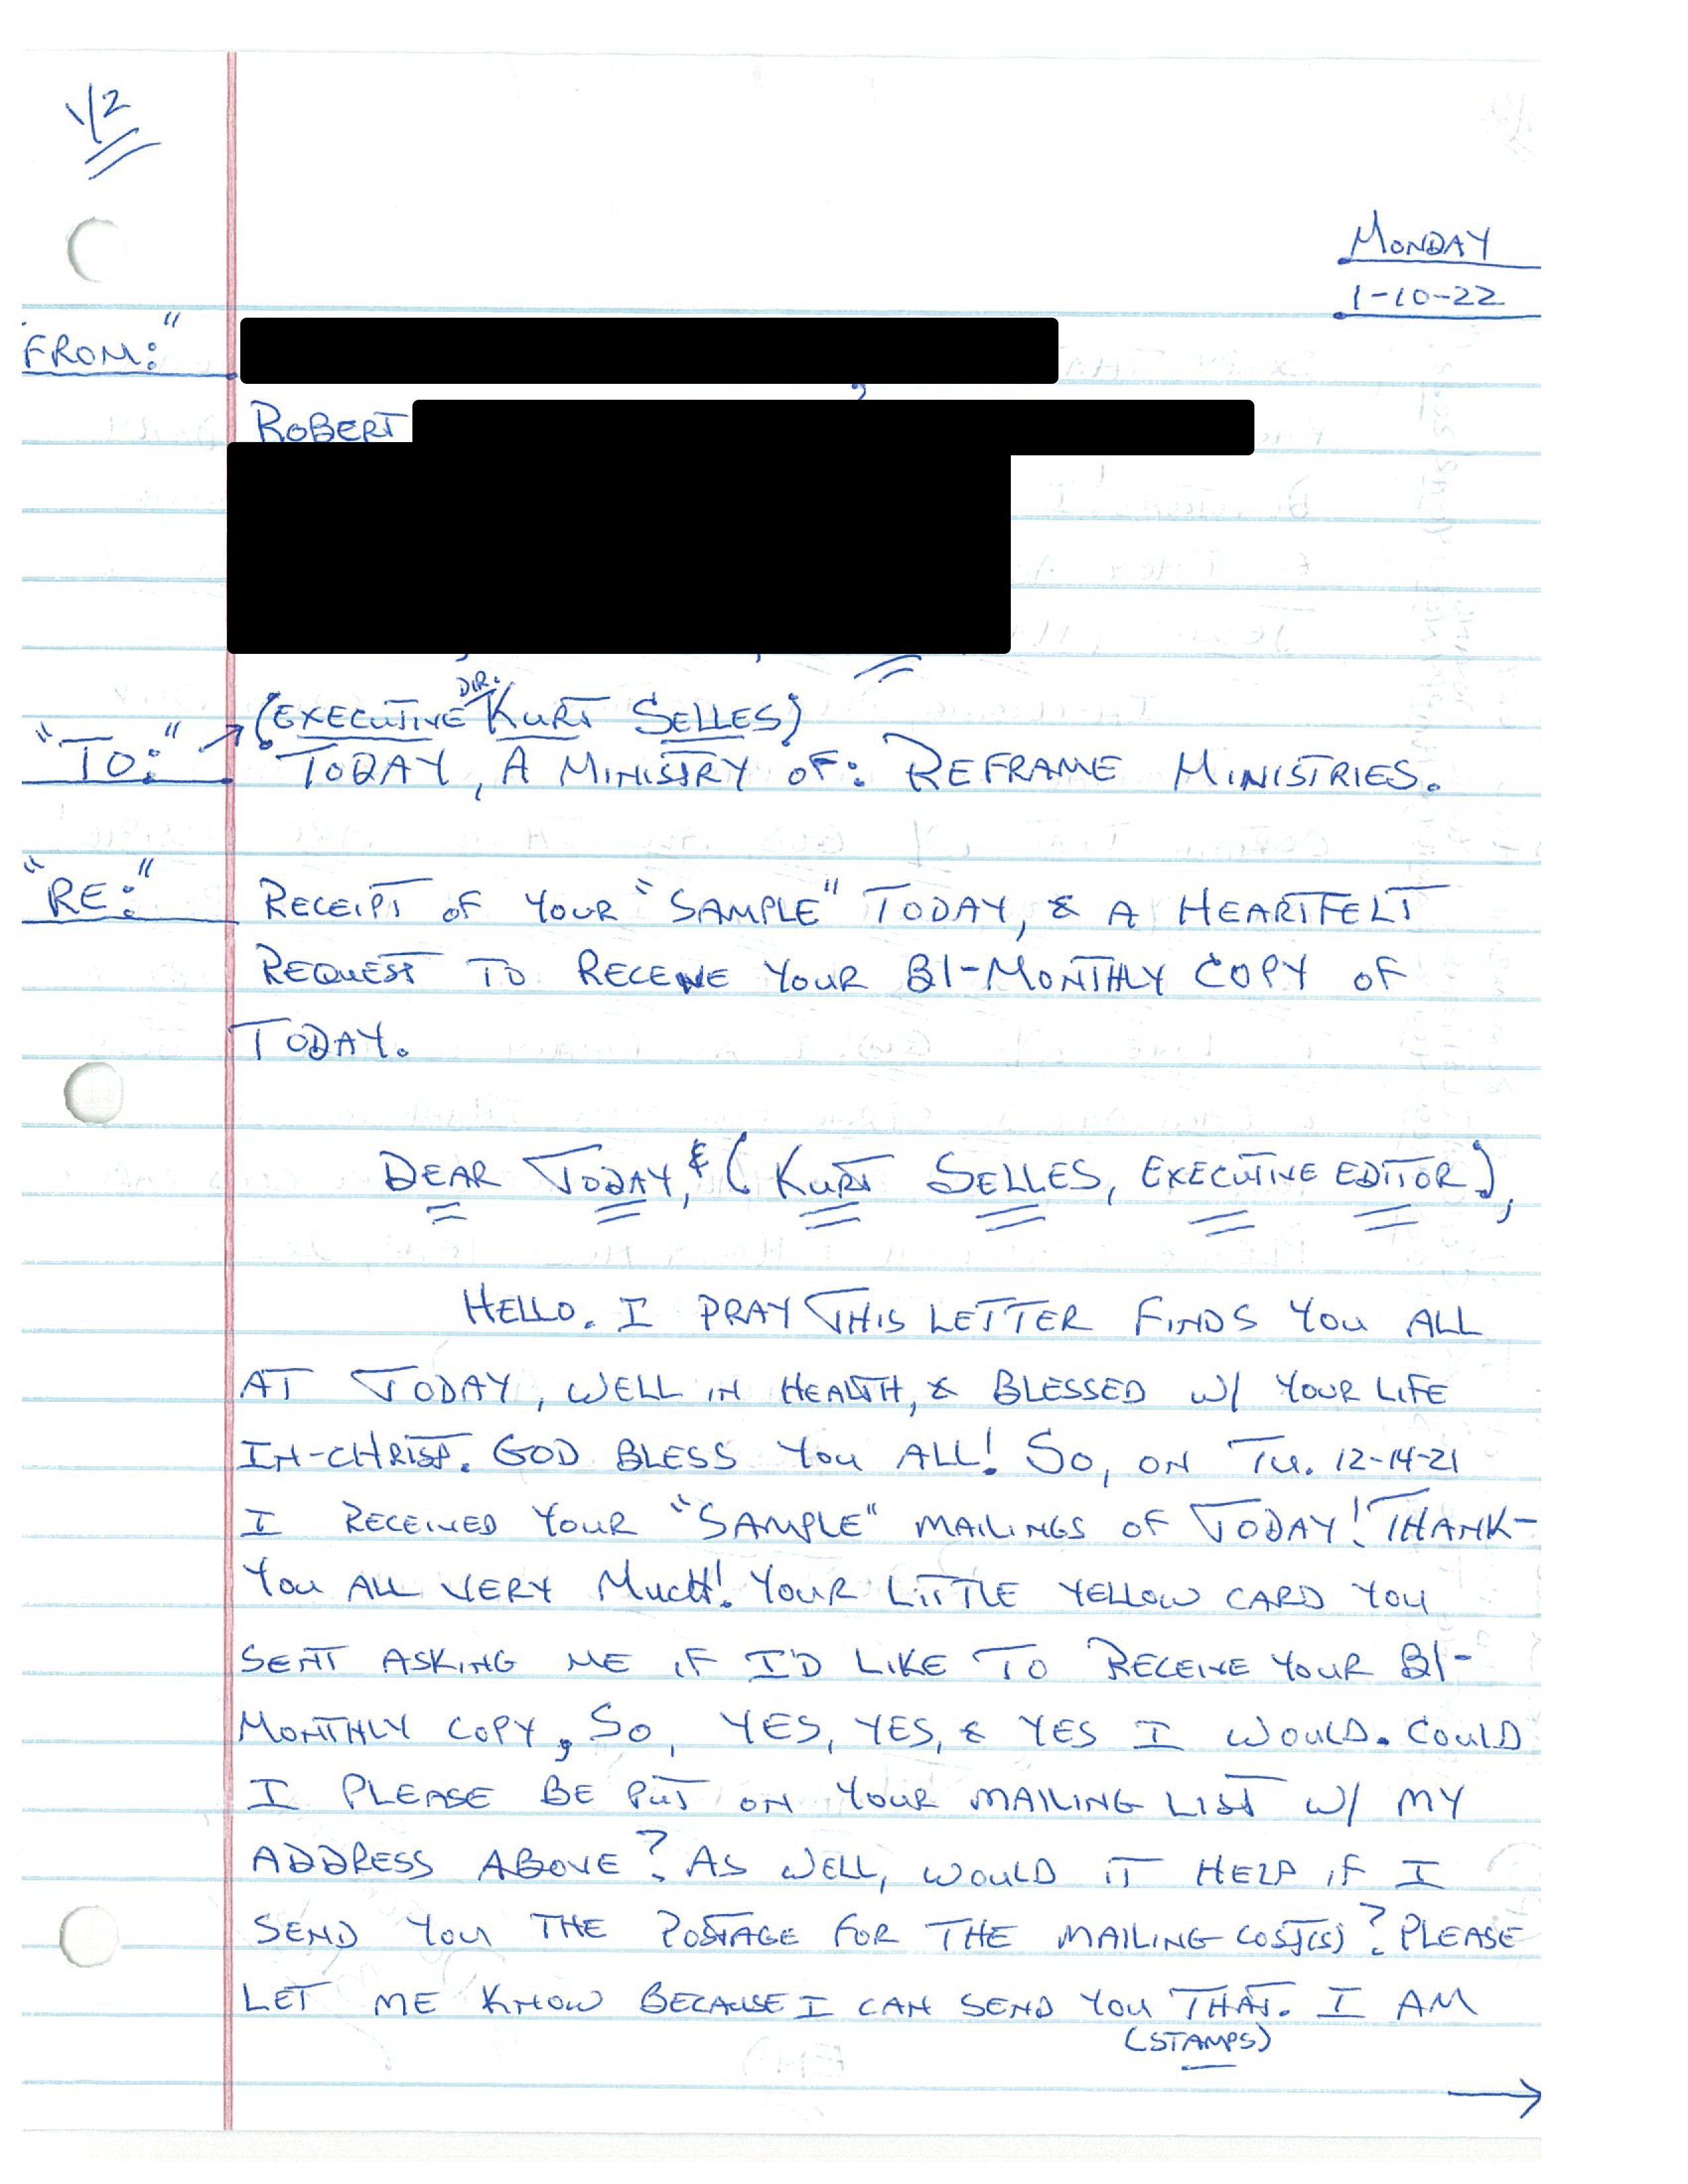 1/2
MONDAY
1-10-22
"FROM:"
ROBERT
(EXECUTIVE DIR. KURT SELLES)
"TO:" TODAY, A MINISTRY OF: REFRAME MINISTRIES.
"RE:" RECEIPT OF YOUR "SAMPLE" TODAY, & A HEARTFELT
REQUEST TO RECEIVE YOUR BI-MONTHLY COPY OF
TODAY.
DEAR TODAY, & (KURT SELLES, EXECUTIVE EDITOR),
HELLO. I PRAY THIS LETTER FINDS YOU ALL
AT TODAY, WELL IN HEALTH, & BLESSED W/ YOUR LIFE
IN-CHRIST. GOD BLESS YOU ALL! SO, ON TU. 12-14-21
I RECEIVED YOUR "SAMPLE" MAILINGS OF TODAY! THANK-
YOU ALL VERY MUCH! YOUR LITTLE YELLOW CARD YOU
SENT ASKING ME IF I'D LIKE TO RECEIVE YOUR BI-
MONTHLY COPY, SO, YES, YES, & YES I WOULD. COULD
I PLEASE BE PUT ON YOUR MAILING LIST W/ MY
ADDRESS ABOVE? AS WELL, WOULD IT HELP IF I
SEND YOU THE POSTAGE FOR THE MAILING COST(S)? PLEASE
LET ME KNOW BECAUSE I CAN SEND YOU THAT. I AM
(STAMPS)